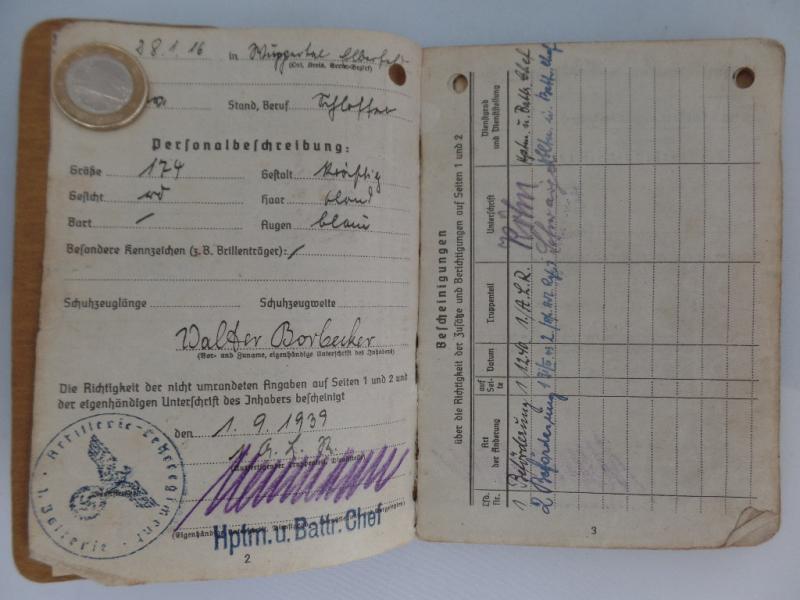 28.1.16 in Wuppertal Elberfeld
(Ort, Kreis, Verw.-Bezirk)
Stand, Beruf Schlosser
Personalbeschreibung:
Größe 174 Gestalt kräftig
Gesicht Haar blond
Bart / Augen blau
Besondere Kennzeichen (z. B. Brillenträger): /
Schuhzeuglänge Schuhzeugweite
Walter Borbecker
(Vor- und Zuname, eigenhändige Unterschrift des Inhabers)
Die Richtigkeit der nicht umrandeten Angaben auf Seiten 1 und 2 und
der eigenhändigen Unterschrift des Inhabers bescheinigt
den 1.9.1939
1. A. L. R.
Artillerie-Lehrregiment
1. Batterie
Hptm. u. Battr. Chef
2
Bescheinigungen
über die Richtigkeit der Zusätze und Berichtigungen auf Seiten 1 und 2
Lfd. Nr.
Art der Änderung
auf Seite
Datum
Truppenteil
Unterschrift
Dienstgrad und Dienststellung
1 Beförderung 1 1./A.L.R. Hptm. u. Battr. Chef
2 Beförderung 1 u. Battr. Chef
3